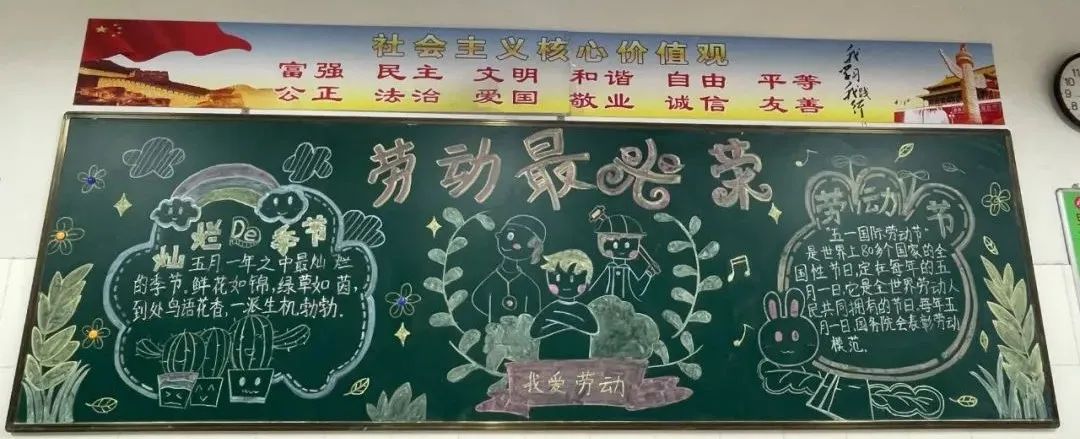 社会主义核心价值观
富强 民主 文明 和谐 自由 平等
公正 法治 爱国 敬业 诚信 友善
劳动最光荣
灿烂De季节
五月一年之中最灿烂
的季节,鲜花如锦,绿草如茵,
到处鸟语花香,一派生机勃勃.
我爱劳动
劳动节
"五一国际劳动节"
是世界上80多个国家的全
国性节日,定在每年的五
月一日,它是全世界劳动人
民共同拥有的节日,每年五
月一日,国务院会表彰劳动
模范.
11
10
9
8